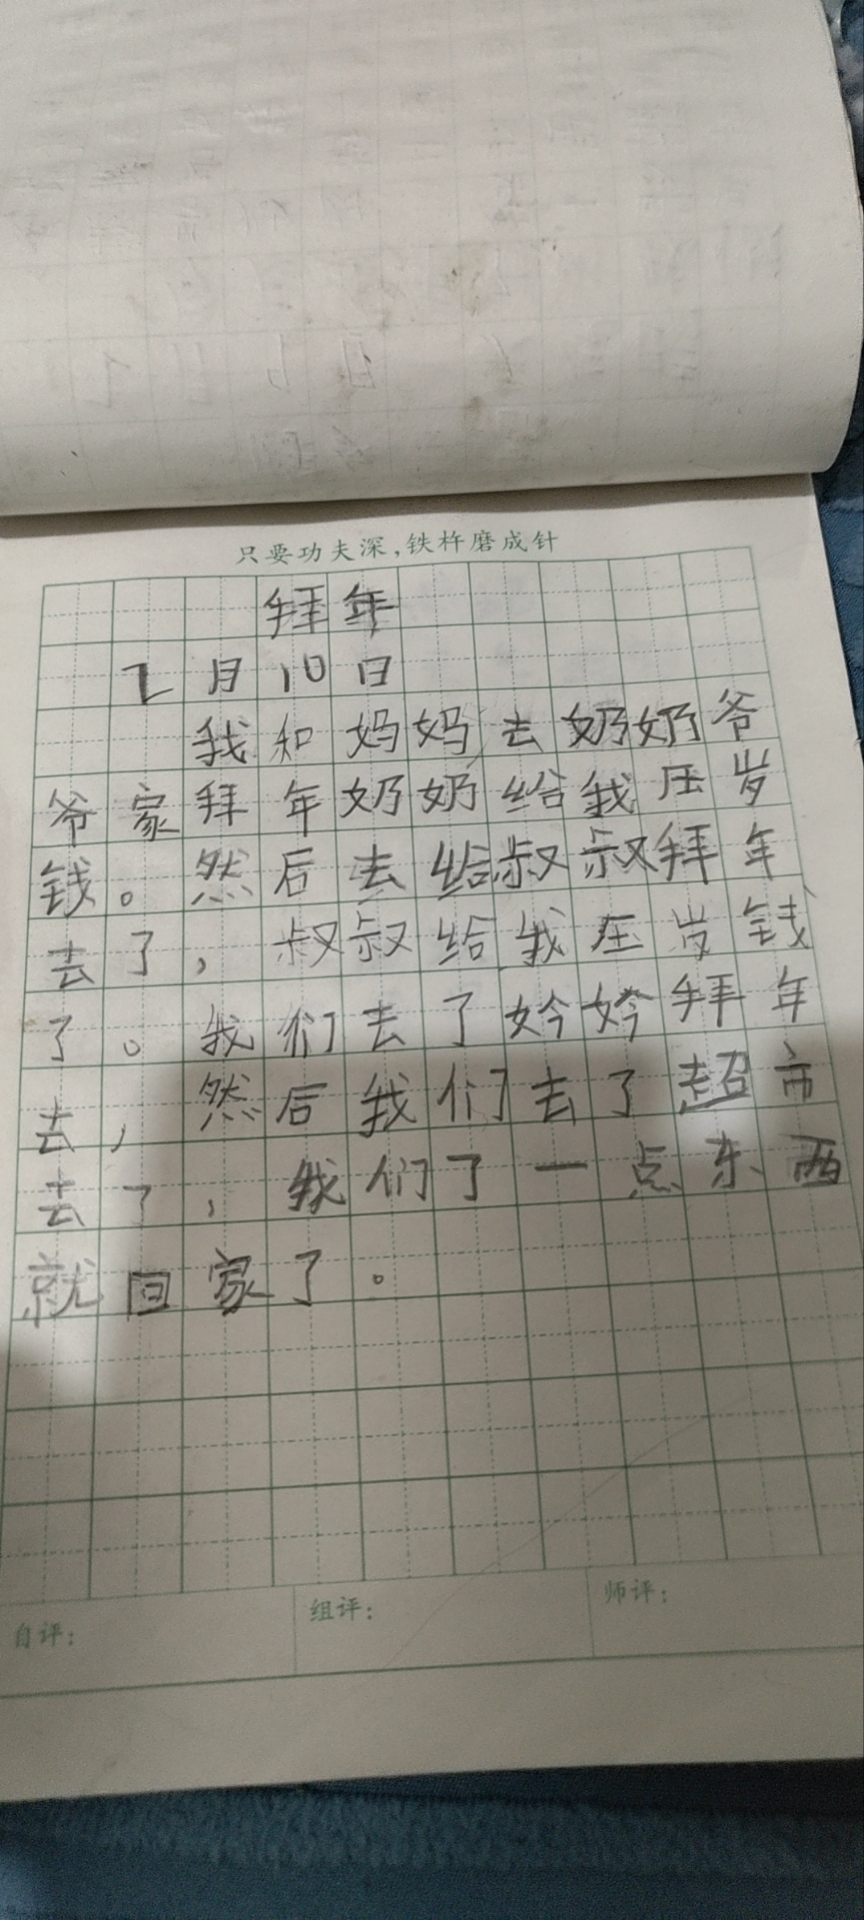 只要功夫深,铁杵磨成针
拜年
2月10日
我和妈妈去奶奶爷
爷家拜年奶奶给我压岁
钱。然后去给叔叔拜年
去了,叔叔给我压岁钱
了。我们去了妗妗拜年
去,然后我们去了超市
去了,我们了一点东西
就回家了。
自评:
组评:
师评: